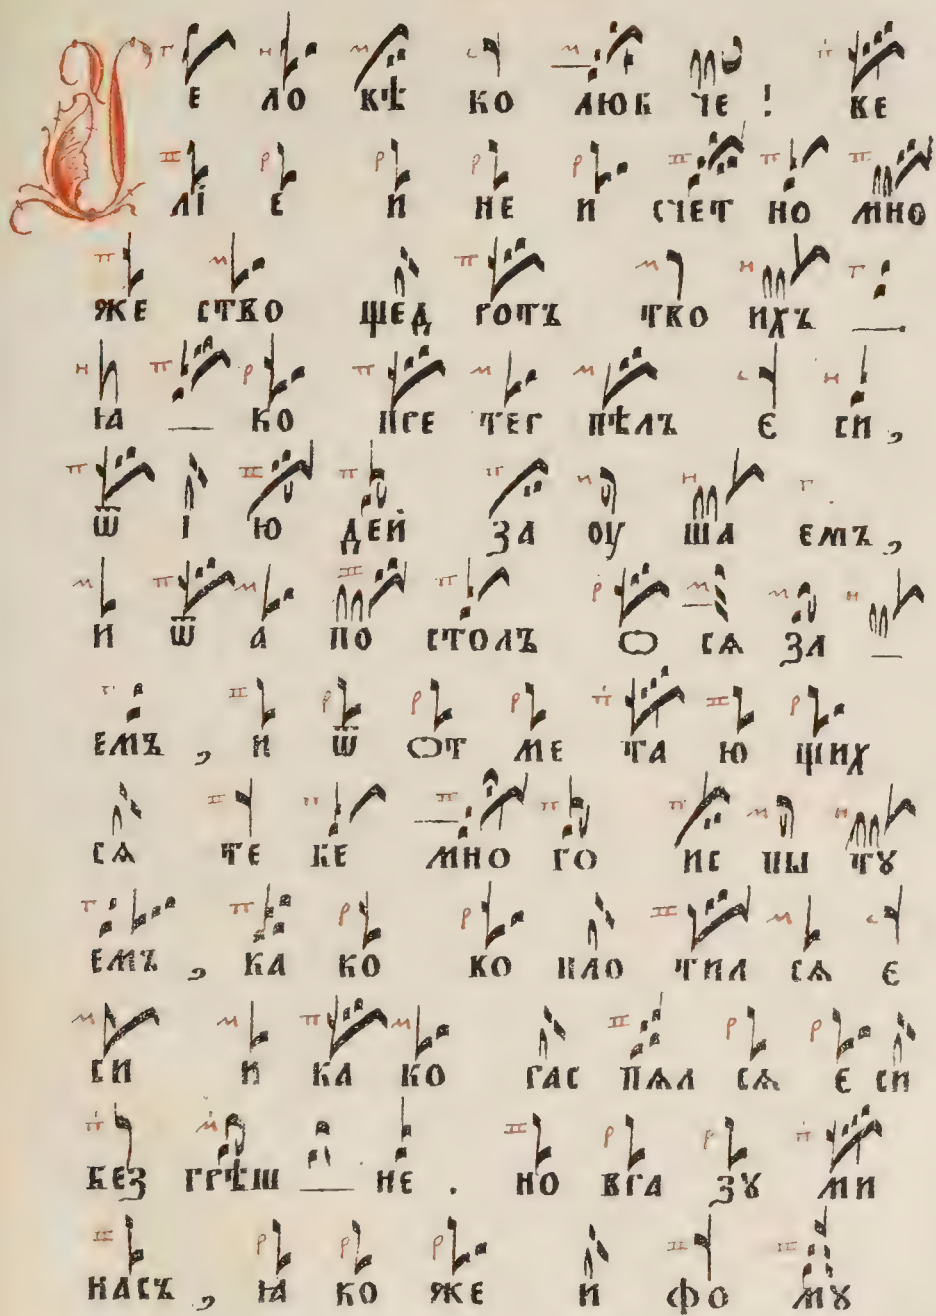 Ч Е ЛО ВѢ КО ЛЮБ ЧЕ ! ВЕ
ЛІ Е И НЕ И СЧЕТ НО МНО
ЖЕ СТВО ЩЕД РОТЪ ТВО ИХЪ
ꙖА КО ПРЕ ТЕР ПѢЛЪ Є СИ,
Ѿ І Ю ДЕЙ ЗА ОУ ША ЕМЪ,
И Ѿ А ПО СТОЛЪ Ѻ СѦ ЗА
ЕМЪ, И Ѿ ѺТ МЕ ТА Ю ЩИХ
СѦ ТЕ БЕ МНО ГО ИС ПЫ ТꙊ
ЕМЪ, КА КО ВО ПЛО ТИЛ СѦ Є
СИ И КА КО РАС ПѦЛ СѦ Є СИ
БЕЗ ГРѢШ НЕ . НО ВРА ЗꙊ МИ
НАСЪ, Ꙗ КО ЖЕ И ФО МꙊ